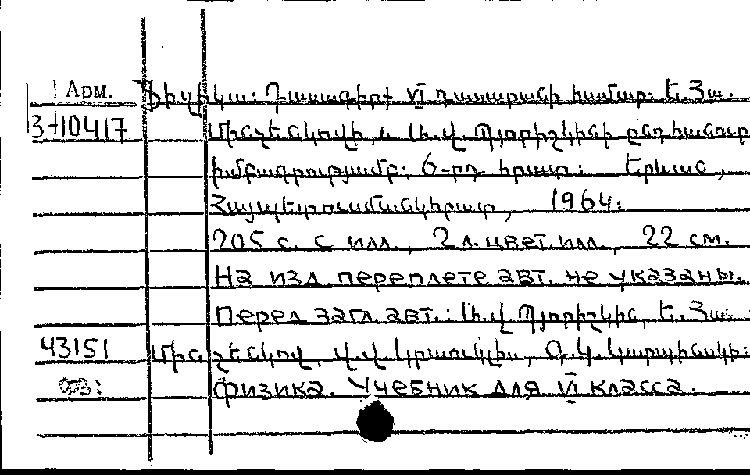 Арм. Ֆիզիկա: Դասագիրք VI դասարանի համար: Ե. Յա.
3-10417 Մինչենկովի և Ա. Վ. Պյորիշկինի ընդհանուր
խմբագրությամբ: 6-րդ հրատ: Երևան,
Հայպետուսմանկհրատ, 1964:
205 с. с илл., 2 л. цвет. илл., 22 см.
На изд. переплете авт. не указаны.
Перед загл. авт.: Ա. Վ. Պյորիշկին, Ե. Յա.
43151 Մինչենկով, Վ. Վ. Կրաուկլիս, Գ. Կ. Կարպինսկի:
Физика. Учебник для VI класса.